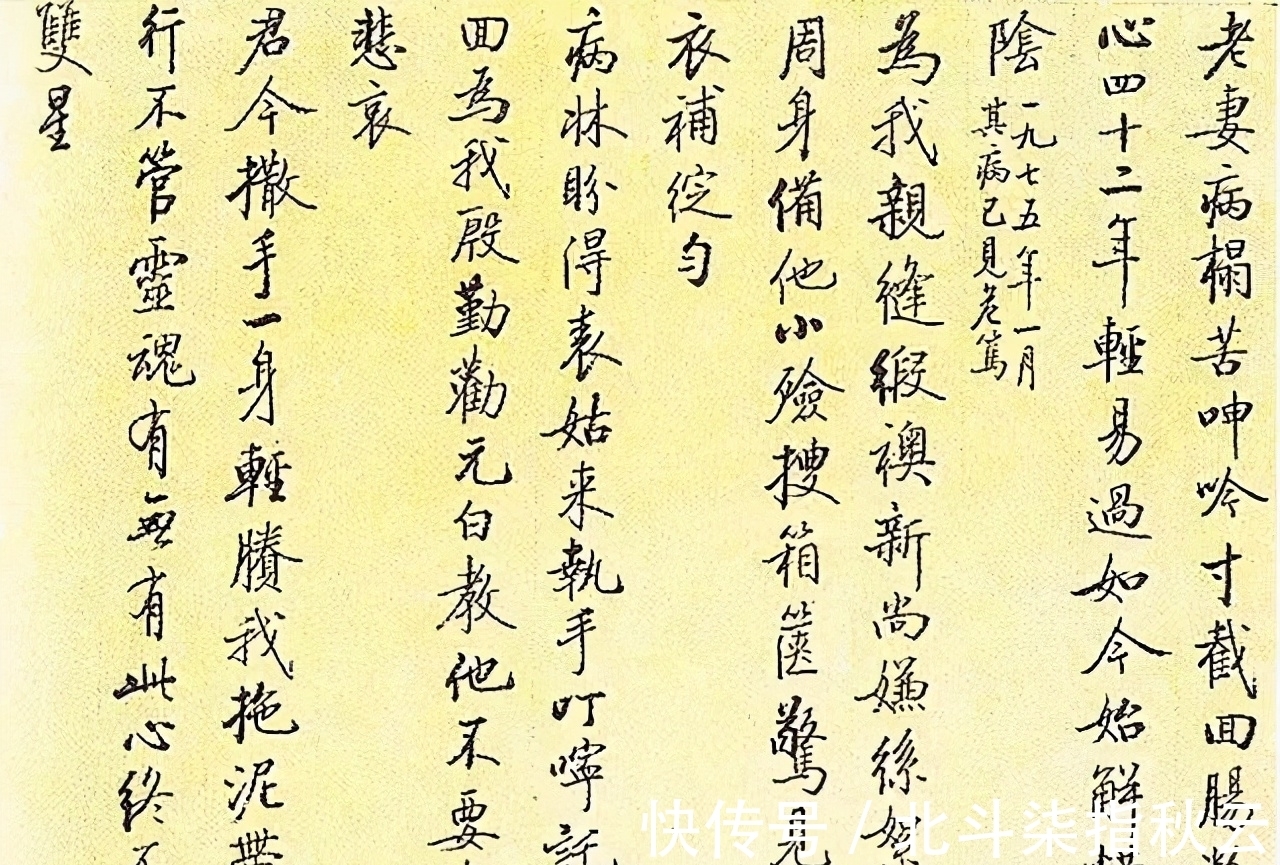 老妻病榻苦呻吟寸截回腸
心四十二年輕易過如今始解
陰 一九七五年一月
其病已見危篤
為我親縫緞襖新尚嫌絲絮
周身備他小殮搜箱篋驚見
衣補綻勻
病牀盼得表姑來執手叮嚀託
回為我殷勤勸元白教他不要
悲哀
君今撒手一身輕賸我拖泥帶
行不管靈魂有無有此心終不
雙星
快传号 / 北斗柒指秋云